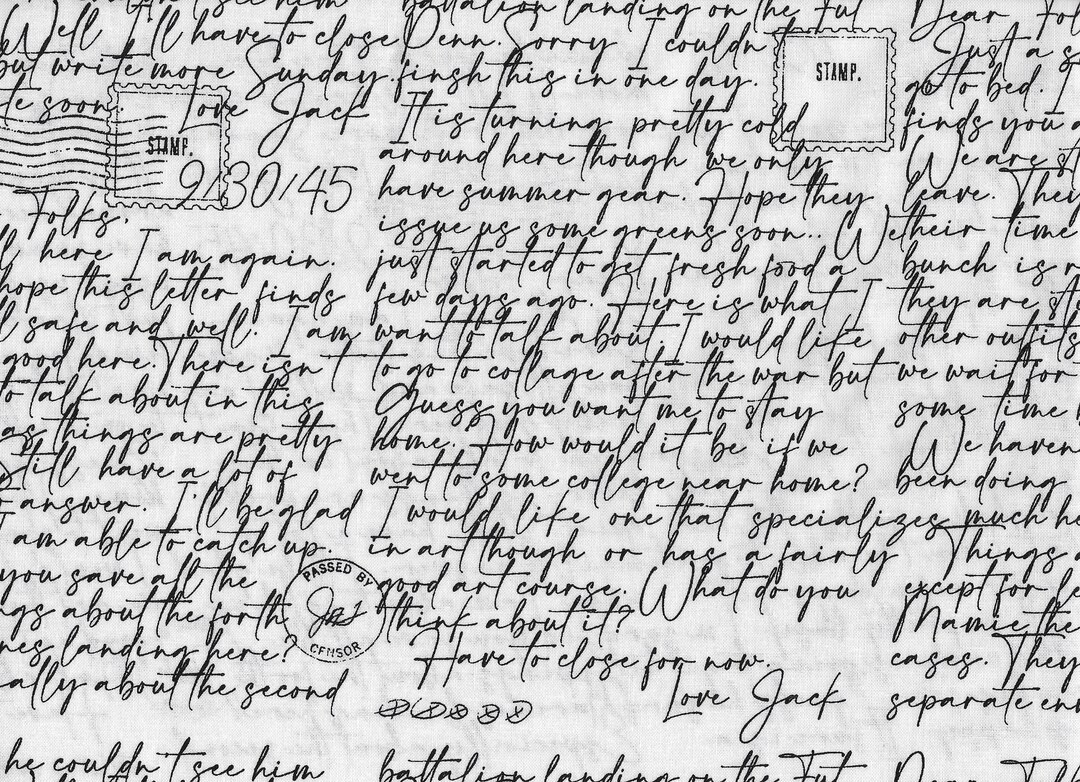 he couldn't see him
Well I'll have to close
but write more Sunday.
te soon. Love Jack
STAMP.
9/30/45
Folks.
ll here I am again.
hope this letter finds
l safe and well. I am
good here. There isn't
to talk about in this
as things are pretty
Still have a lot of
answer. I'll be glad
I am able to catch up.
you save all the
ngs about the forth
nes landing here?
ally about the second
he couldn't see him
battalion landing on the Fut
Denn. Sorry I couldn't
finsh this in one day.
It is turning pretty cold
around here though we only
have summer gear. Hope they
issue us some greens soon.. We
just started to get fresh food a
few days ago. Here is what I
want to talk about. I would like
to go to collage after the war but
Guess you want me to stay
home. How would it be if we
went to some college near home?
I would like one that specializes
in art though or has a fairly
good art course. What do you
think about it?
Have to close for now.
Love Jack
PASSED BY
CENSOR
battalion landing on the Fut
STAMP.
Dear Fol
Just a s
go to bed. I
finds you a
We are st
leave. They
their time
bunch is r
they are st
other outfits
we wait for
some time
We haven
been doing
much he
Things a
except for le
Mamie the
cases. They
separate en
Dear Fol